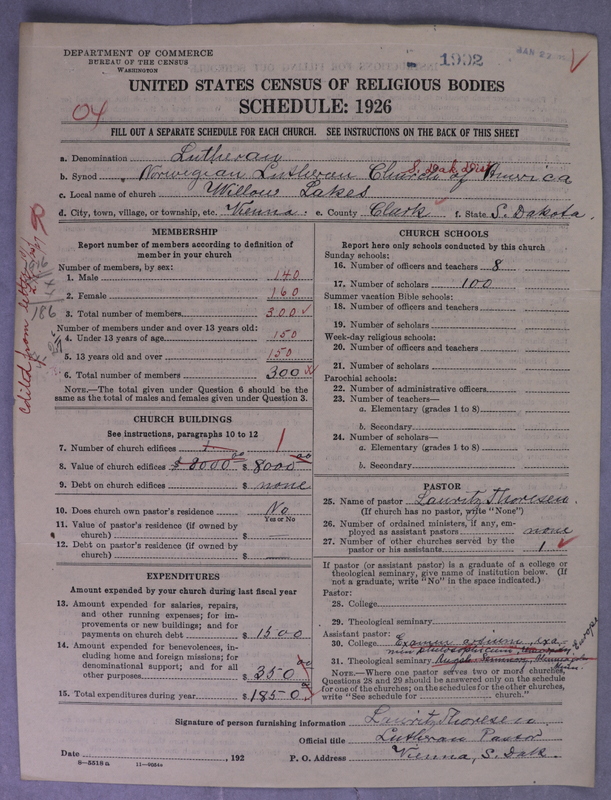 DEPARTMENT OF COMMERCE
BUREAU OF THE CENSUS
WASHINGTON
1992
JAN 22
UNITED STATES CENSUS OF RELIGIOUS BODIES
SCHEDULE: 1926
04
FILL OUT A SEPARATE SCHEDULE FOR EACH CHURCH. SEE INSTRUCTIONS ON THE BACK OF THIS SHEET
a. Denomination Lutheran
b. Synod Norwegian Lutheran Church of America S. Dak. Dist.
c. Local name of church Willow Lakes
d. City, town, village, or township, etc. Vienna e. County Clark f. State S. Dakota.
MEMBERSHIP
Report number of members according to definition of member in your church
Number of members, by sex:
1. Male 140
2. Female 160
3. Total number of members 300
Number of members under and over 13 years old:
4. Under 13 years of age 150
5. 13 years old and over 150
6. Total number of members 300
NOTE.—The total given under Question 6 should be the same as the total of males and females given under Question 3.
CHURCH BUILDINGS
See instructions, paragraphs 10 to 12
7. Number of church edifices 1 1
8. Value of church edifices $ 8000 00 $ 8000 00
9. Debt on church edifices $ none
10. Does church own pastor's residence? No
Yes or No
11. Value of pastor's residence (if owned by church) $ —
12. Debt on pastor's residence (if owned by church) $ —
EXPENDITURES
Amount expended by your church during last fiscal year
13. Amount expended for salaries, repairs, and other running expenses; for improvements or new buildings; and for payments on church debt $ 1500
14. Amount expended for benevolences, including home and foreign missions; for denominational support; and for all other purposes $ 350 00
15. Total expenditures during year $ 1850 00
CHURCH SCHOOLS
Report here only schools conducted by this church
Sunday schools:
16. Number of officers and teachers 8
17. Number of scholars 100
Summer vacation Bible schools:
18. Number of officers and teachers
19. Number of scholars
Week-day religious schools:
20. Number of officers and teachers
21. Number of scholars
Parochial schools:
22. Number of administrative officers
23. Number of teachers—
a. Elementary (grades 1 to 8)
b. Secondary
24. Number of scholars—
a. Elementary (grades 1 to 8)
b. Secondary
PASTOR
25. Name of pastor Lauritz Thoresen
(If church has no pastor, write "None")
26. Number of ordained ministers, if any, employed as assistant pastors none
27. Number of other churches served by the pastor or his assistants 1
If pastor (or assistant pastor) is a graduate of a college or theological seminary, give name of institution below. (If not a graduate, write "No" in the space indicated.)
Pastor:
28. College
29. Theological seminary
Assistant pastor:
30. College Examen artium, Exa-
men philosophicum Europe
31. Theological seminary
NOTE.—Where one pastor serves two or more churches, Questions 28 and 29 should be answered only on the schedule for one of the churches; on the schedules for the other churches, write "See schedule for church."
Signature of person furnishing information Lauritz Thoresen
Official title Lutheran Pastor
Date , 192 P. O. Address Vienna, S. Dak.
8—5518 a 11—9054a